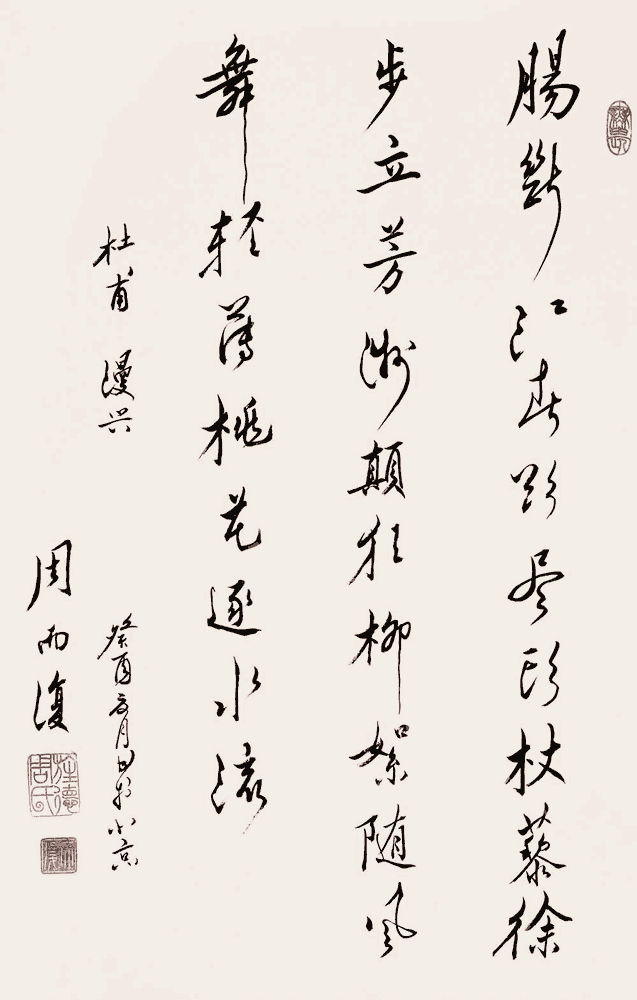 腸斷江春欲尽頭杖藜徐
步立芳洲顛狂柳絮随风
舞轻薄桃花逐水流
杜甫 漫兴
癸酉 月 日於北京
周而復